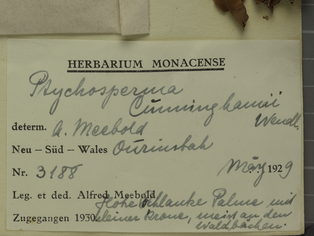 HERBARIUM MONACENSE
Ptychosperma
Cunninghamii
Wendl.
determ. A. Meebold
Neu - Süd - Wales Ourimbah
Nr. 3188 May 1929
Leg. et ded. Alfred Meebold
Hohe schlanke Palme mit
Zugegangen 1930. kleiner Krone, meist an den
Waldbächen.